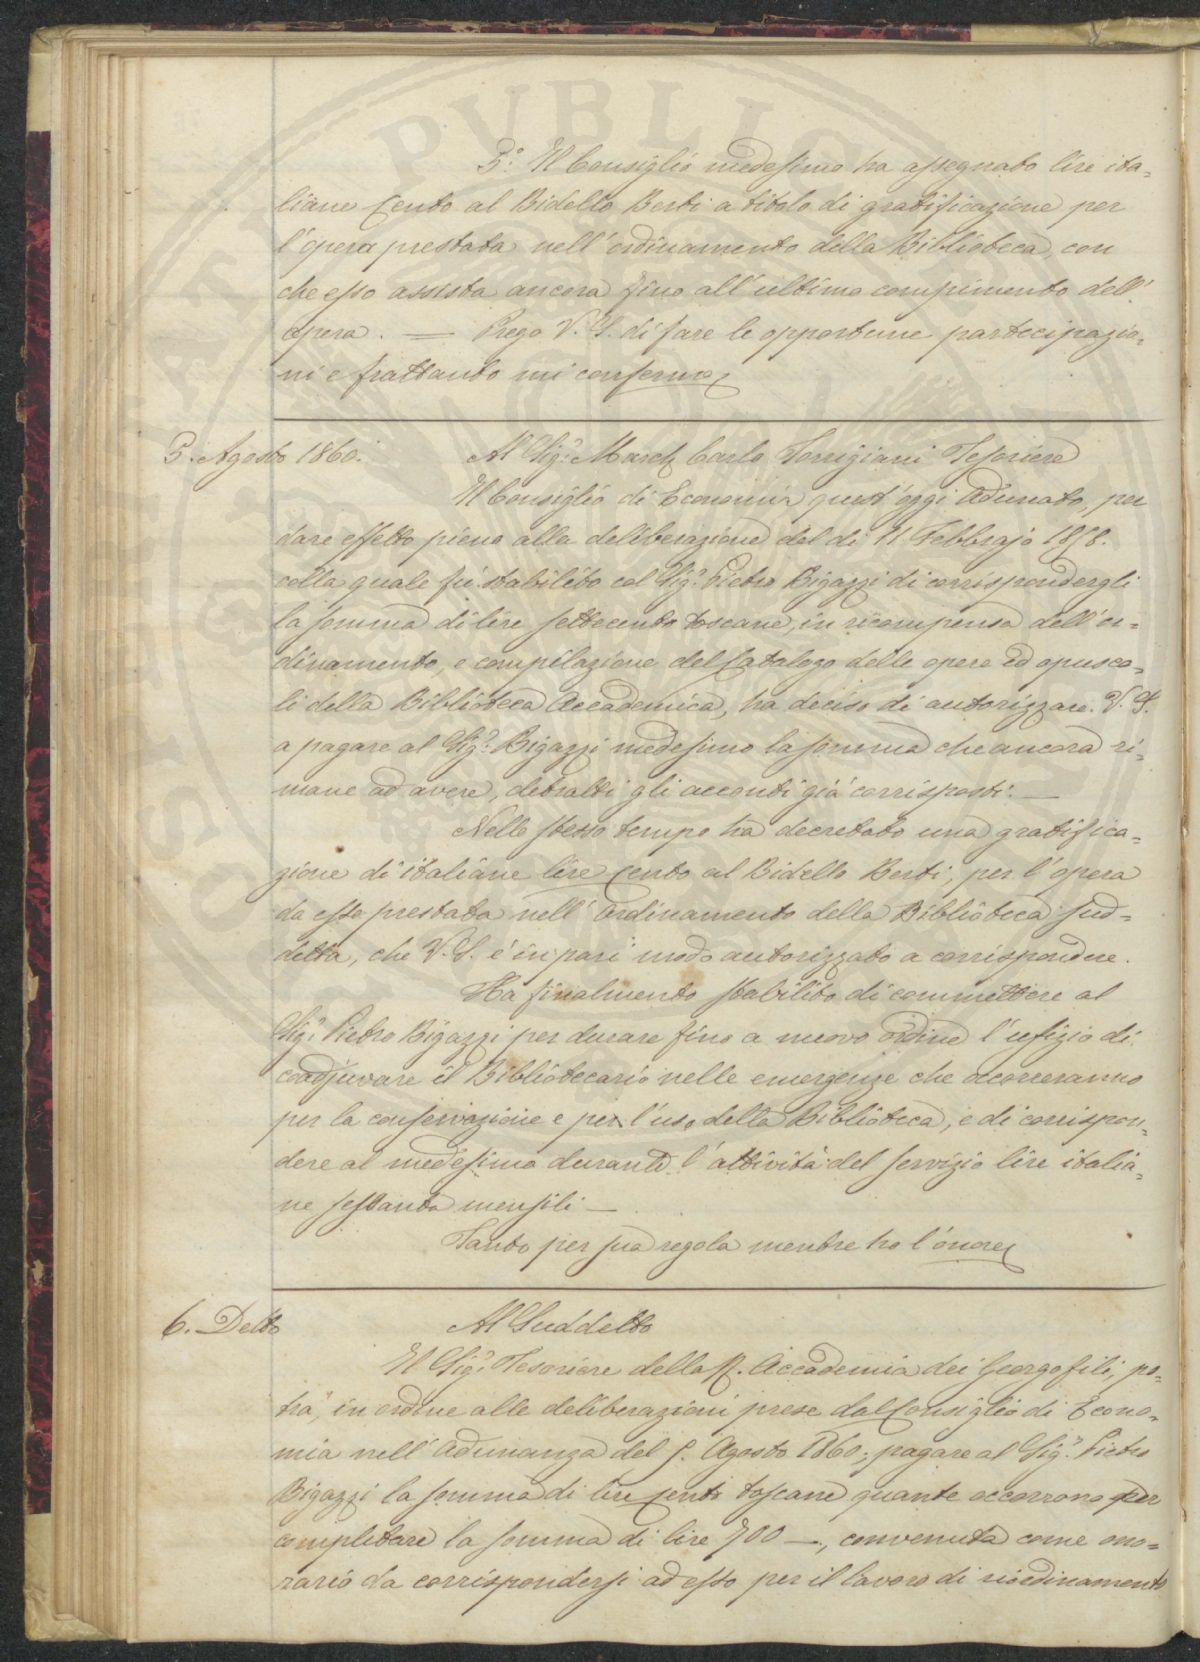 3.° Il Consiglio medesimo ha assegnato lire ita=
liane Cento al Bidello Berti a titolo di gratificazione per
l'opera prestata nell'ordinamento della Biblioteca, con
che esso assista ancora fino all'ultimo compimento dell'
opera. — Prego V. S. di fare le opportune partecipazio=
ni e frattanto mi confermo
5. Agosto 1860. Al Sig.r March. Carlo Torrigiani Tesoriere
Il Consiglio di Economia quest'oggi adunato, per
dare effetto pieno alla deliberazione del di 21 Febbrajo 1858.
colla quale fù stabilito col Sig.r Pietro Bigazzi di corrispondergli
la somma di lire settecento toscane, in ricompensa dell'or=
dinamento, e compilazione del Catalogo delle opere ed opusco=
li della Biblioteca Accademica, ha deciso di autorizzare V. S.
a pagare al Sig.r Bigazzi medesimo la somma che ancora ri=
mane ad avere, detratti gli acconti già corrisposti. —
Nello stesso tempo ha decretato una gratifica=
zione di italiane lire Cento al Bidello Berti, per l'opera
da esso prestata nell'ordinamento della Biblioteca sud=
detta, che V. S. é in pari modo autorizzato a corrispondere.
Ha finalmente stabilito di commettere al
Sig.r Pietro Bigazzi per durare fino a nuovo ordine l'ufizio di
coadjuvare il Bibliotecario nelle emergenze che occorreranno
per la conservazione e per l'uso della Biblioteca, e di corrispon=
dere al medesimo durante l'attività del servizio lire italia=
ne sessanta mensili —
Tanto per sua regola mentre ho l'onore
6. Detto Al Suddetto
Il Sig.r Tesoriere della R. Accademia dei Georgofili, po=
trà, in ordine alle deliberazioni prese dal Consiglio di Econo=
mia nell'adunanza del 5. Agosto 1860, pagare al Sig.r Pietro
Bigazzi la somma di lire cento toscane quante occorrono per
completare la somma di lire 700 —, convenuta come ono=
rario da corrispondersi ad esso per il lavoro di riordinamento